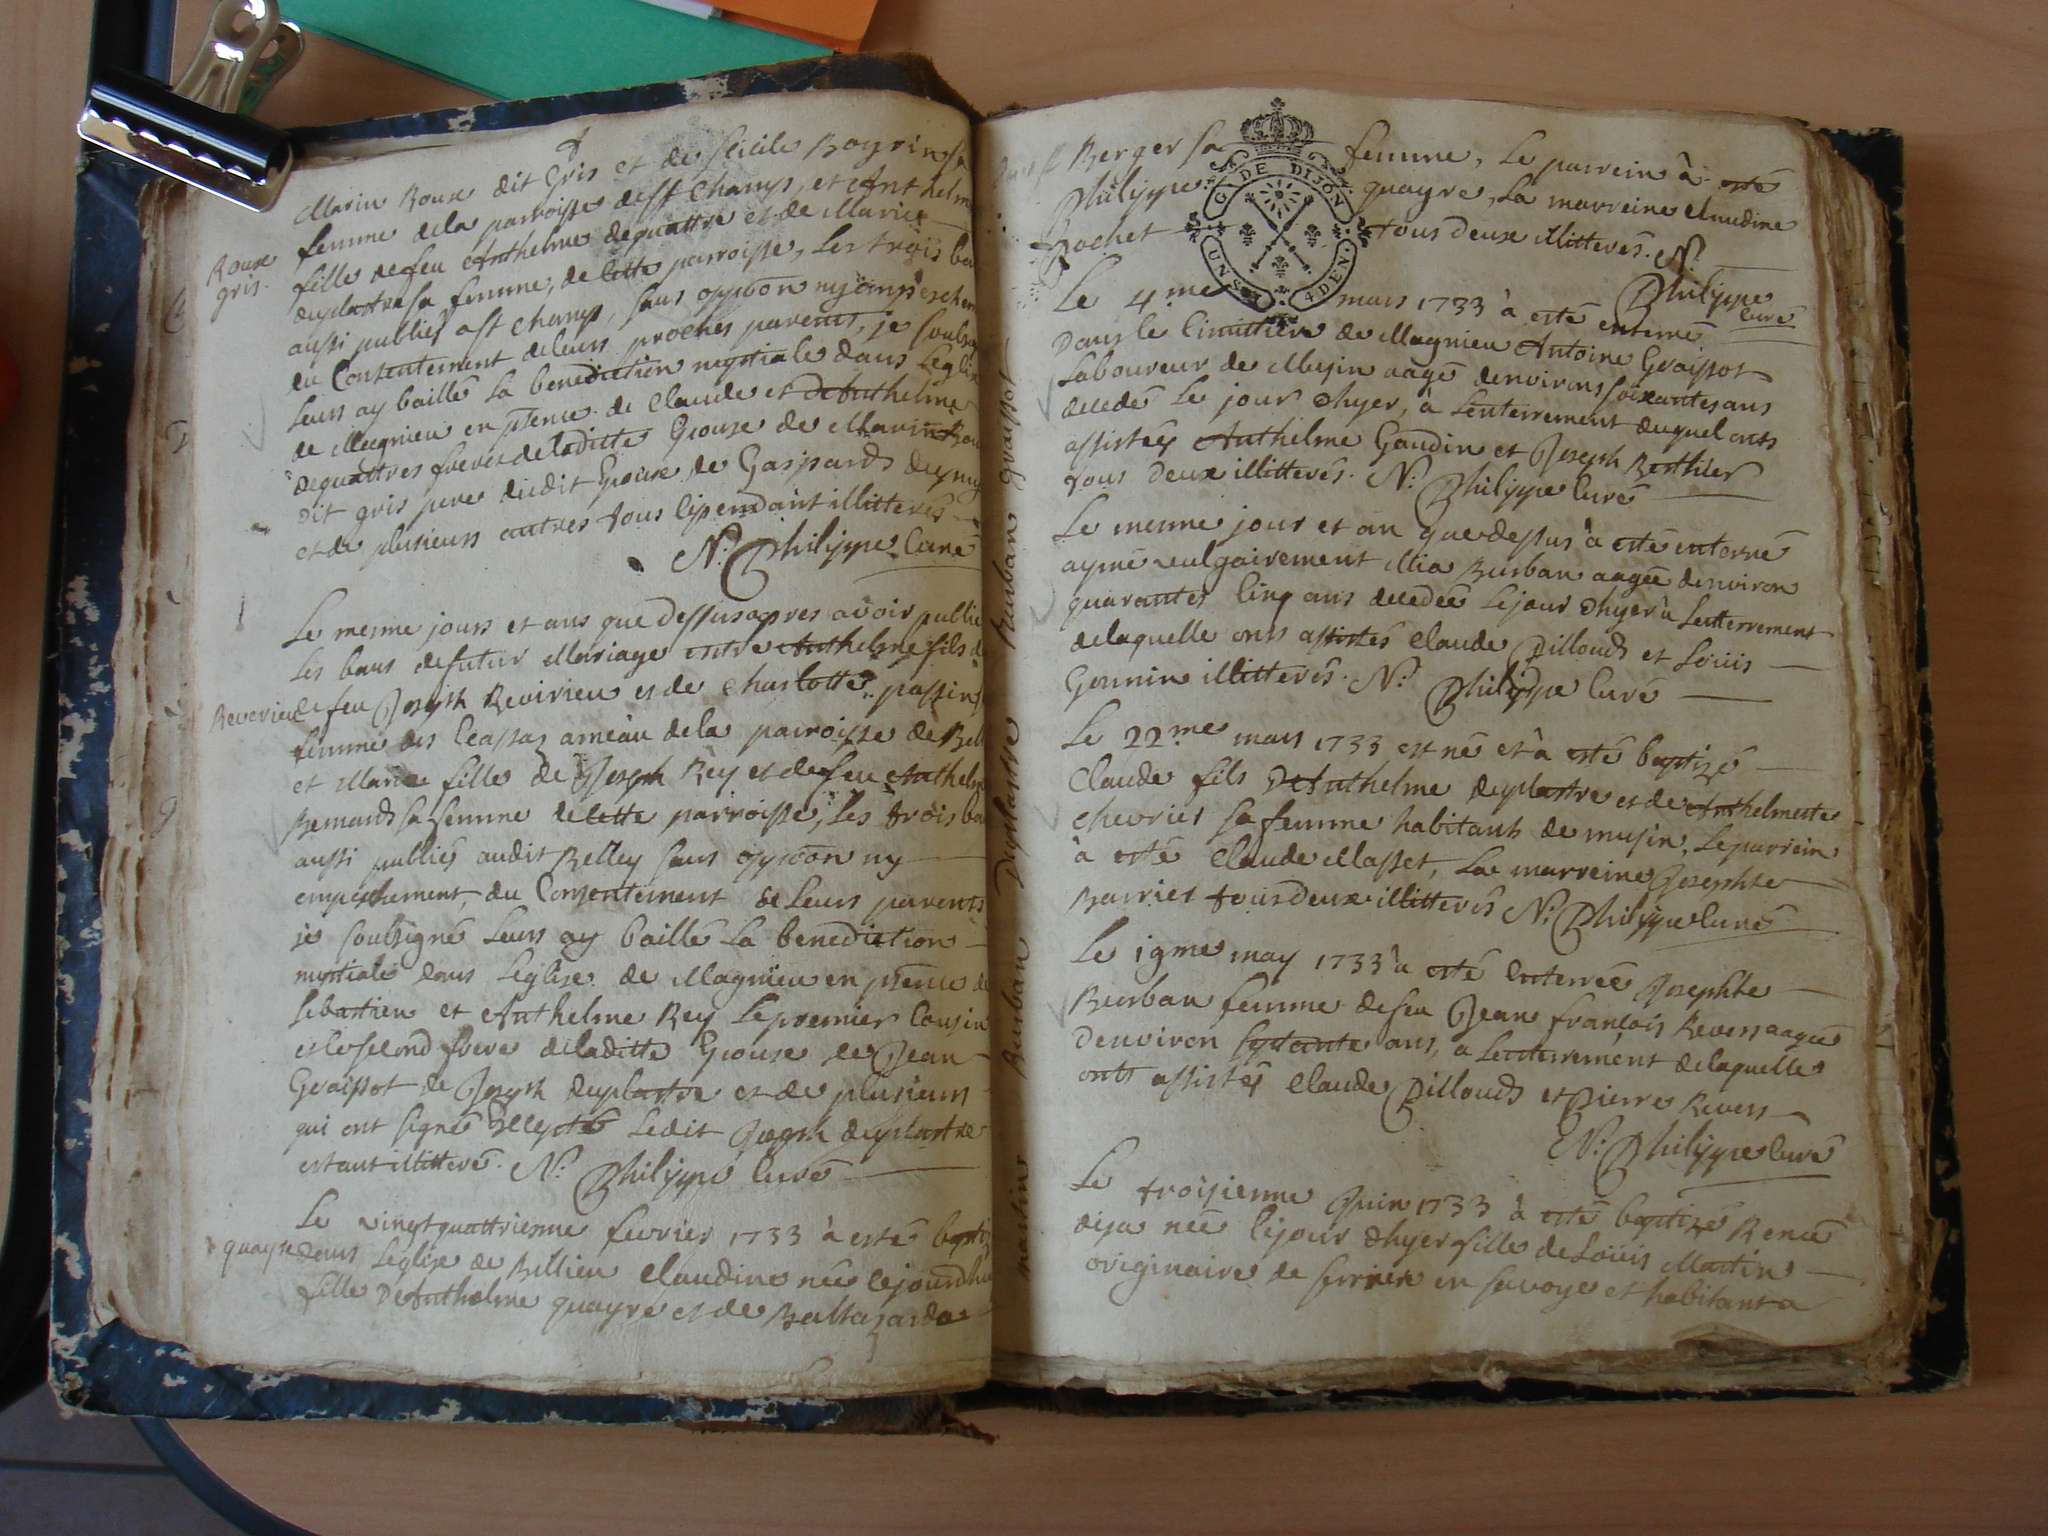 Marin Roux dit Gris et de Cécile Boyrin sa
femme de la parroisse dest Champs, et Anthelm
Roux
gris.
fille de feu Anthelme dequattre et de Marie
duplastre sa femme, de cette parroisse, Les trois ba
aussi publiés ast Champs, sans oppoon ny
du Consentement de leurs proches parents, je soubs
leurs ay baillé La benediction nuptiale dans L'eglise
de Magnieu en pñence de Claude et D'Anthelme
dequattres freres de laditte Epouse de Marin Rou
dit gris pere dudit Epoux de Gaspards
et de plusieurs autres tous cependant illitterés
N: Philippe Curé
Le mesme jours et ans que dessus apres avoir publié
Les bans de futur Mariage entre Anthelme fils
Reverieu
de feu Joseph Revirieu et de Charlotte passin
femme des Ceassaz ameau de la parroisse de Bell
et Marie fille de Joseph Rey et de feu Anthelm
Bernards sa femme de cette parroisse, Les trois ba
aussi publiés audit Belley sans oppoon ny
empechement, du Consentement de Leurs parents
je soubsigné Leurs ay baillé La benediction
nuptiale dans L'eglise de Magnieu en pñence de
Sebastien et Anthelme Rey Le premier Cousin
et le second frere de laditte Epouse de Jean
Graissot de Joseph duplastre et de plusieurs
qui ont signé Excepté Ledit Joseph duplastre
estant illitteré. N: Philippe Curé
Le vingt quattrieme fevrier 1733 à esté bapti
quayre
dans L'eglise de Billieu Claudine née le jourdhui
fille D'Anthelme quayre et de Baltazarde
Berger sa femme, Le parrein à esté
Philippe quayre, La marreine Claudine
Bochet tous deux illitterés. N:
Philippe
Curé
G. DE DIJON
UN S. 4 DEN.
Le 4.me mars 1733 à esté enterré
Dans le Cimittiere de Magnieu Antoine Graissot
Laboureur de Musin aagé denvirons soixantes ans
decedé Le jour d'hyer, à Lenterrement duquel onts
assistés Anthelme Gaudin et Joseph Berthier
tous deux illitterés. N: Philippe Curé
Le mesme jour et an que dessus à esté enterré
aymé vulgairement Mia Burban aagée denviron
quarantes Cinq ans decedée Le jour d'hyer à Lentterrement
de laquelle onts assistés Claude Pillouds et Loüis
Gonnin illitterés. N: Philippe Curé
Le 22.me mars 1733 est né et à esté baptizé
Claude fils D'Anthelme duplastre et de Anthelmette
Chevrier sa femme habitants de musin, Le parrein
à esté Claude Masset, La marreine Josephte
Barrier tous deux illitterés N: Philippe Curé
Le 19me may 1733 à esté Enterrée Josephte
Burban femme de feu Jean françois Revers aagée
D'environ septante ans, à Lenterrement de laquelle
onts assistés Claude Pillouds et Pierre Revers
N: Philippe Curé
Le troisienne Juin 1733 à esté baptizé Renée
deja née Le jour d'hyer fille de Loüis Martin
originaire de Serrier en Savoye et habitant a
graissot
Burban
Duplastre
Burban
martin